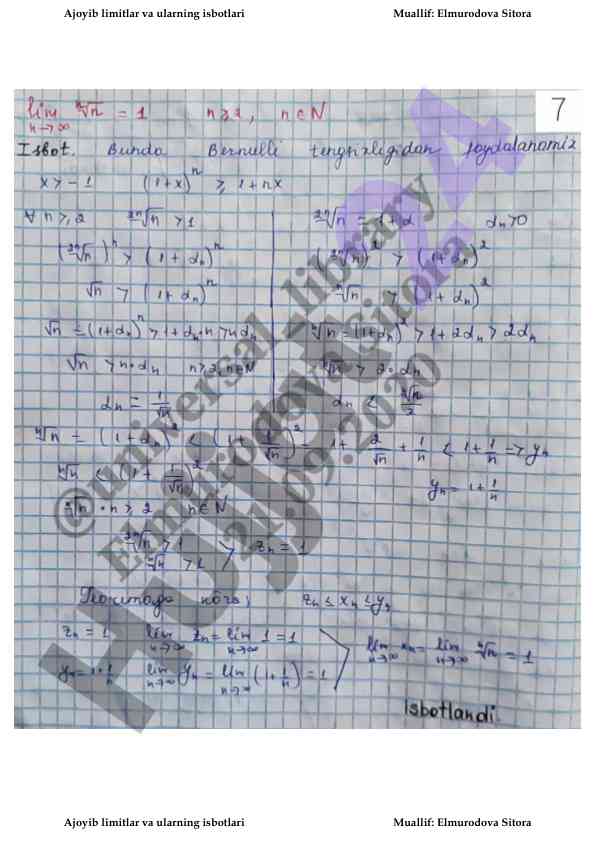 Ajoyib limitlar va ularning isbotlari Muallif: Elmurodova Sitora
lim ⁿ√n = 1 n ≥ 2, n ∈ N 7
n→∞
Isbot. Bunda Bernulli tengsizligidan foydalanamiz
x > -1 (1+x)ⁿ ≥ 1+nx
∀ n ≥ 2 ²ⁿ√n > 1 ²ⁿ√n = 1+d dₙ > 0
(²ⁿ√n)ⁿ > (1+dₙ)ⁿ (²ⁿ√n)² > (1+dₙ)²
√n > (1+dₙ)ⁿ ⁿ√n > (1+dₙ)²
√n = (1+dₙ)ⁿ > 1+dₙ·n > n dₙ ⁿ√n = (1+dₙ)² > 1+2dₙ > 2dₙ
√n > n·dₙ n ≥ 2, n ∈ N ⁿ√n > 2·dₙ
dₙ = 1/√n dₙ < ⁿ√n/2
ⁿ√n = (1+dₙ)² < (1+1/√n)² = 1+2/√n+1/n < 1+1/n => yₙ
ⁿ√n < (1+1/√n)² yₙ = 1+1/n
n ≥ 2 n ∈ N
²ⁿ√n > 1
ⁿ√n > 1 zₙ = 1
zₙ ≤ xₙ ≤ yₙ
zₙ = 1 lim zₙ = lim 1 = 1
n→∞ n→∞
lim xₙ = lim ⁿ√n = 1
n→∞ n→∞
yₙ = 1+1/n lim yₙ = lim (1+1/n) = 1
n→∞ n→∞
isbotlandi
@universal_library
Elmurodova Sitora
21.09.2020
Ajoyib limitlar va ularning isbotlari Muallif: Elmurodova Sitora